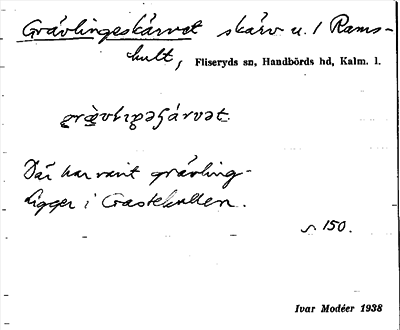 Grävlingeskärvet skärv u. / Rams-
hult, Fliseryds sn, Handbörds hd, Kalm. l.
Där har varit grävling.
Ligger i Gastekullen.
s 150.
Ivar Modéer 1938